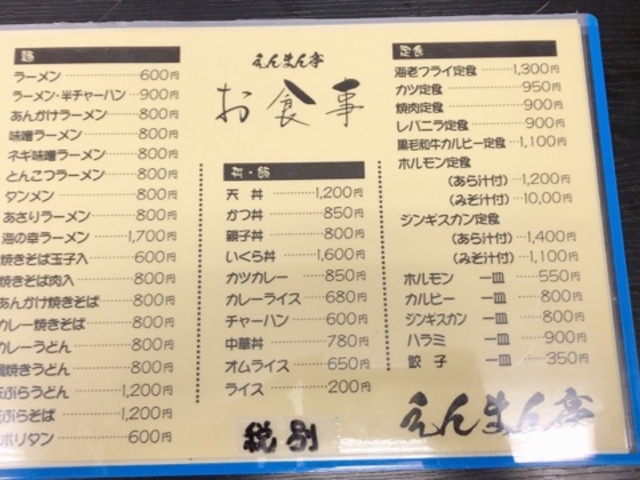 麺
ラーメン 600円
ラーメン・半チャーハン 900円
あんかけラーメン 800円
味噌ラーメン 800円
ネギ味噌ラーメン 800円
とんこつラーメン 800円
タンメン 800円
あさりラーメン 800円
海の幸ラーメン 1,700円
焼きそば玉子入 600円
焼きそば肉入 800円
あんかけ焼きそば 800円
カレー焼きそば 800円
カレーうどん 800円
焼きうどん 800円
ぷらうどん 1,200円
ぷらそば 1,200円
ポリタン 600円
えんまん亭
お食事
丼・飯
天丼 1,200円
かつ丼 850円
親子丼 800円
いくら丼 1,600円
カツカレー 850円
カレーライス 680円
チャーハン 600円
中華丼 780円
オムライス 650円
ライス 200円
税別
定食
海老フライ定食 1,300円
カツ定食 950円
焼肉定食 900円
レバニラ定食 900円
黒毛和牛カルビー定食 1,100円
ホルモン定食
(あら汁付) 1,200円
(みそ汁付) 10,00円
ジンギスカン定食
(あら汁付) 1,400円
(みそ汁付) 1,100円
ホルモン 一皿 550円
カルビー 一皿 800円
ジンギスカン 一皿 800円
ハラミ 一皿 900円
餃子 一皿 350円
えんまん亭